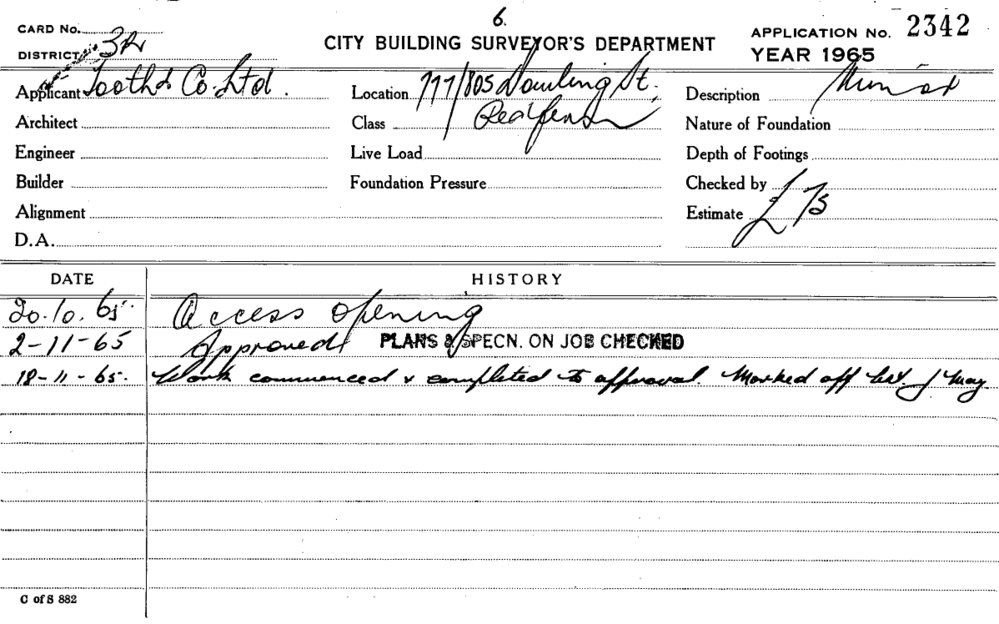 6.
CARD No.
CITY BUILDING SURVEYOR'S DEPARTMENT
APPLICATION No. 2342
DISTRICT 32
YEAR 1965
Applicant Tooth & Co. Ltd.
Location 777/805 Dowling St.,
Redfern
Description Minor
Architect
Class
Nature of Foundation
Engineer
Live Load
Depth of Footings
Builder
Foundation Pressure
Checked by
Alignment
Estimate £75
D.A.
DATE HISTORY
20.10.65. Access opening
2-11-65 Approved PLANS & SPECN. ON JOB CHECKED
18-11-65. Work commenced & completed to approval. Marked off
C of S 882